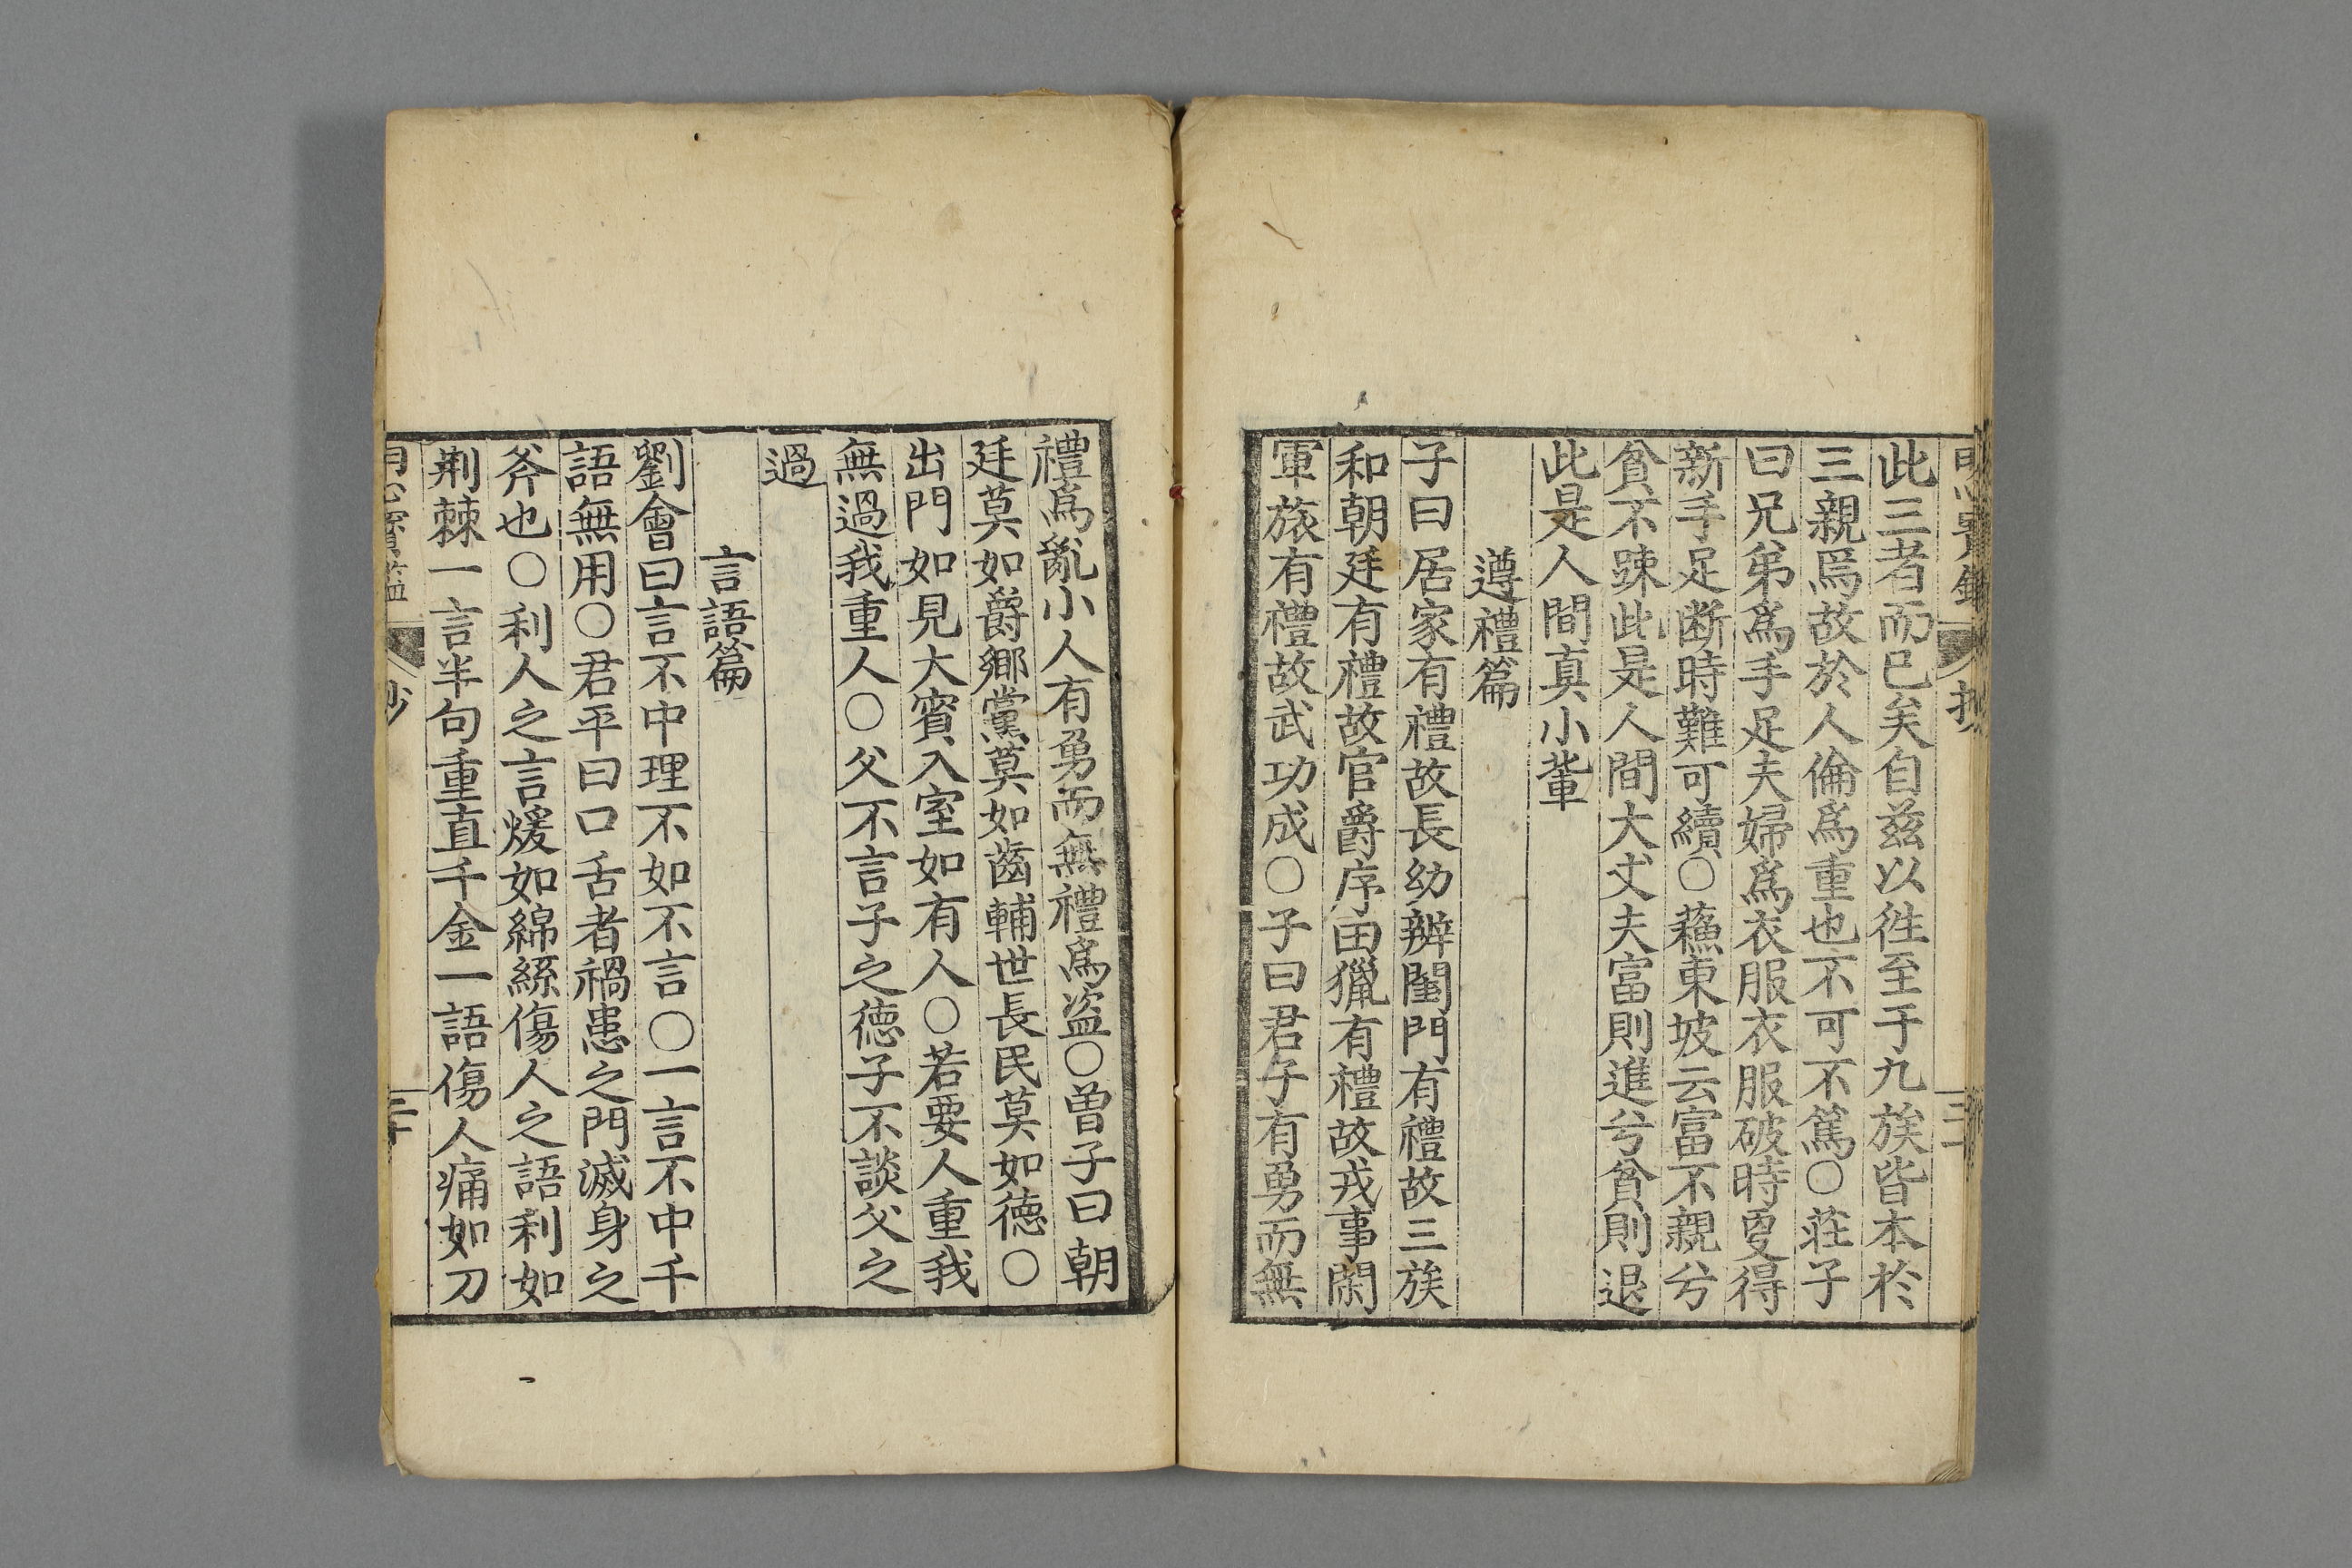 此三者而已矣自茲以徃至于九族皆本於
三親焉故於人倫爲重也不可不篤○莊子
曰兄弟爲手足夫婦爲衣服衣服破時更得
新手足断時難可續○蘇東坡云富不親兮
貧不踈此是人間大丈夫富則進兮貧則退
此是人間真小輩
遵禮篇
子曰居家有禮故長幼辨閨門有禮故三族
和朝廷有禮故官爵序田獵有禮故戎事閑
軍旅有禮故武功成○子曰君子有勇而無
禮爲亂小人有勇而無禮爲盗○曽子曰朝
廷莫如爵鄉黨莫如齒輔世長民莫如德○
出門如見大賓入室如有人○若要人重我
無過我重人○父不言子之德子不談父之
過
言語篇
劉會曰言不中理不如不言○一言不中千
語無用○君平曰口舌者禍患之門滅身之
斧也○利人之言煖如綿絲傷人之語利如
荆棘一言半句重直千金一語傷人痛如刀